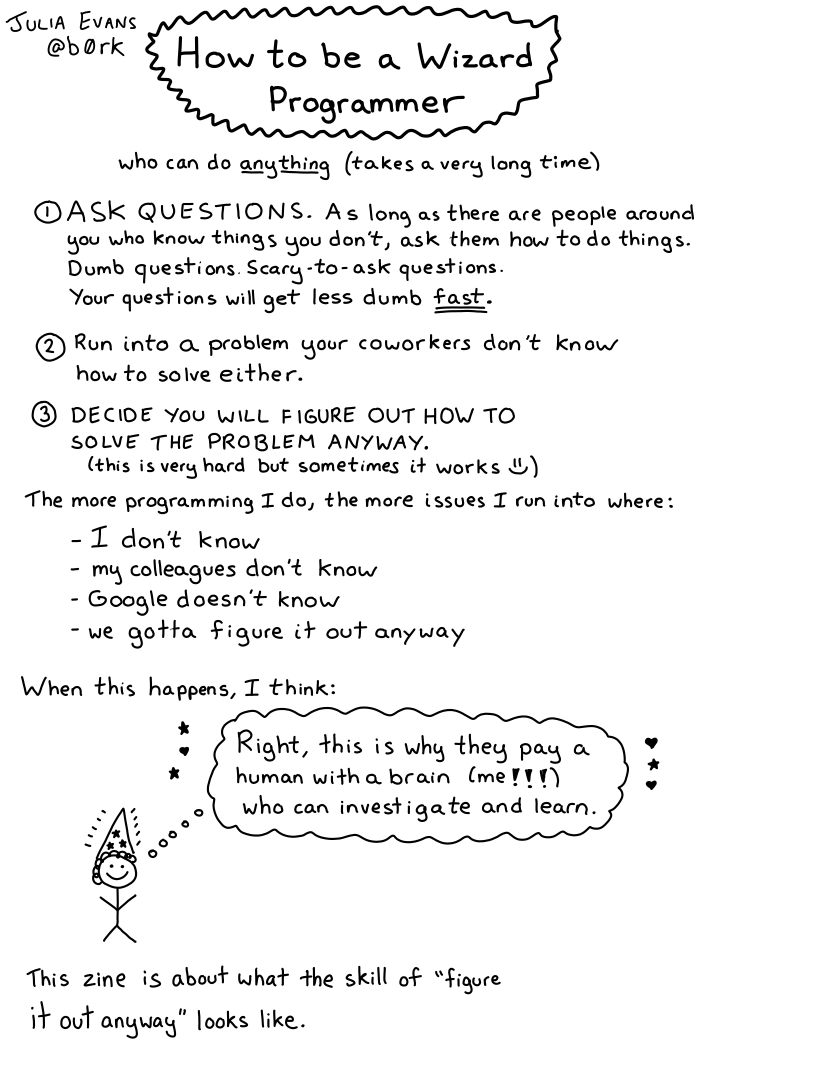 JULIA EVANS
@b0rk
How to be a Wizard
Programmer
who can do anything (takes a very long time)
① ASK QUESTIONS. As long as there are people around
you who know things you don't, ask them how to do things.
Dumb questions. Scary-to-ask questions.
Your questions will get less dumb fast.
② Run into a problem your coworkers don't know
how to solve either.
③ DECIDE YOU WILL FIGURE OUT HOW TO
SOLVE THE PROBLEM ANYWAY.
(this is very hard but sometimes it works ☺)
The more programming I do, the more issues I run into where:
- I don't know
- my colleagues don't know
- Google doesn't know
- we gotta figure it out anyway
When this happens, I think:
Right, this is why they pay a
human with a brain (me!!!)
who can investigate and learn.
This zine is about what the skill of "figure
it out anyway" looks like.